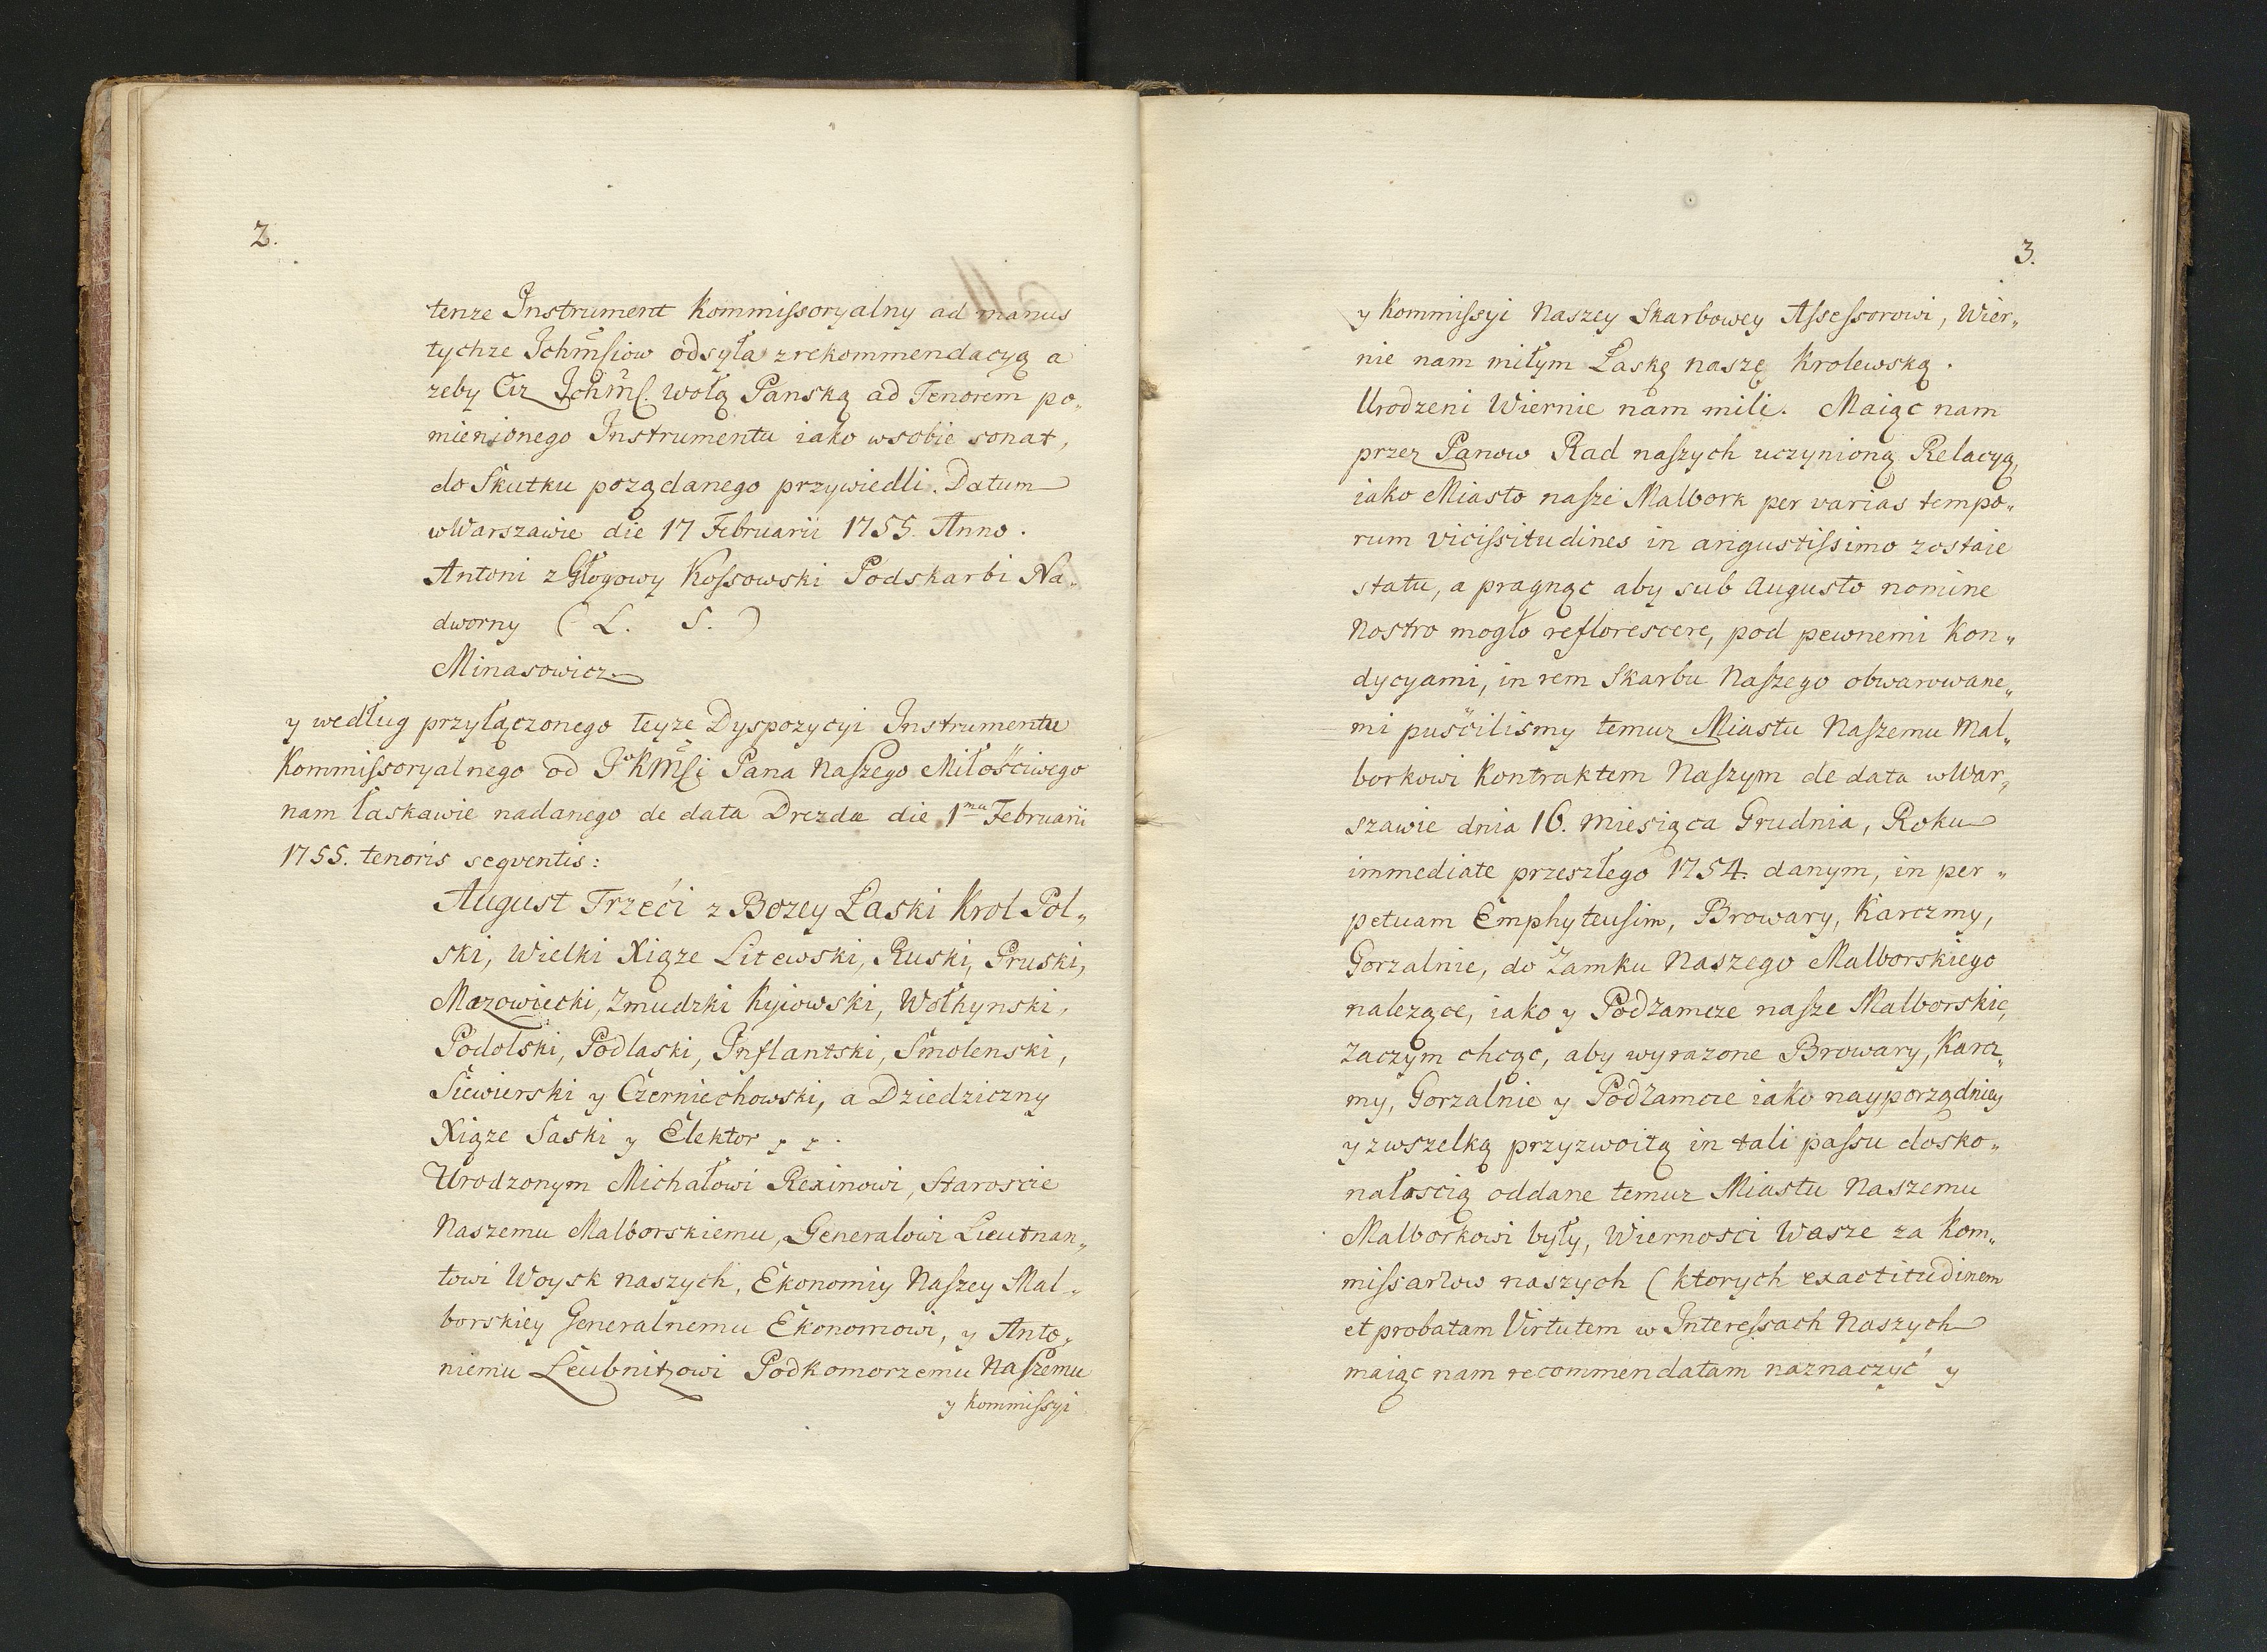 2.
tenze Instrument Kommissoryalny ad manus
tychze Jchmsiow odsyła z rekommendacyą a
zeby Ciz Jchms. wolą Panską ad Tenorem po„
mienionego Instrumentu iako wsobie sonat,
do Skutku poządanego przywiedli. Datum
wWarszawie die 17 Februarii 1755. Anno.
Antoni z Głogowy Kossowski Podskarbi Na„
dworny ( L. S. )
Minasowicz
y według przyłączonego teyze Dyspozycyi Instrumentu
Kommissoryalnego od JoKMSi Pana Naszego Miłościwego
nam łaskawie nadanego de data Drezdæ die 1ma Februarii
1755. tenoris seqventis:
August Trzeći z Bozey Łaski Krol Pol„
ski, Wielki Xiąze Litewski, Ruski, Pruski,
Mazowiecki, Zmudzki Kyiowski, Wołhynski,
Podolski, Podlaski, Inflantski, Smolenski,
Siewierski y Czerniechowski, a Dziedziczny
Xiąze Saski y Elektor
Urodzonym Michałowi Rexinowi, Staroscie
Naszemu Malborskiemu, Generalowi Lieutnan„
towi Woysk naszych, Ekonomiy Naszey Mal„
borskiey Generalnemu Ekonomowi, y Anto„
niemu Leubnitzowi Podkomorzemu Naszemu
y Kommissyi
3.
y Kommissyi Naszey Skarbowey Assessorowi, Wier„
nie nam miłym Łaskę naszę Krolewską.
Urodzeni Wiernie nam mili. Maiąc nam
przez Panow Rad naszych uczynioną Relacyą,
iako Miasto nasze Malbork per varias tempo„
rum vicissitudines in angustissimo zostaie
statu, a pragnąc aby sub Augusto nomine
Nostro mogło reflorescere, pod pewnemi Kon„
dycyami, in rem Skarbu Naszego obwarowane„
mi puścilismy temuz Miastu Naszemu Mal„
borkowi Kontraktem Naszym de data wWar„
szawie dnia 16. Miesiąca Grudnia, Roku
immediate przeszłego 1754. danym, in per„
petuam Emphyteusim, Browary, Karczmy,
Gorzalnie, do Zamku Naszego Malborskiego
nalezące, iako y Podzamcze nasze Malborskie,
Zaczym chcąc, aby wyrazone Browary, Karcz„
my, Gorzalnie y Podzamcze iako nayporządniey
y zwszelką przyzwoitą in tali passu dosko„
nałoscią oddane temuz Miastu Naszemu
Malborkowi były, Wiernosci Wasze za Kom„
missarzow naszych (ktorych exactitudinem
et probatam Virtutem w Interessach Naszych
maiąc nam recommendatam naznaczyć y